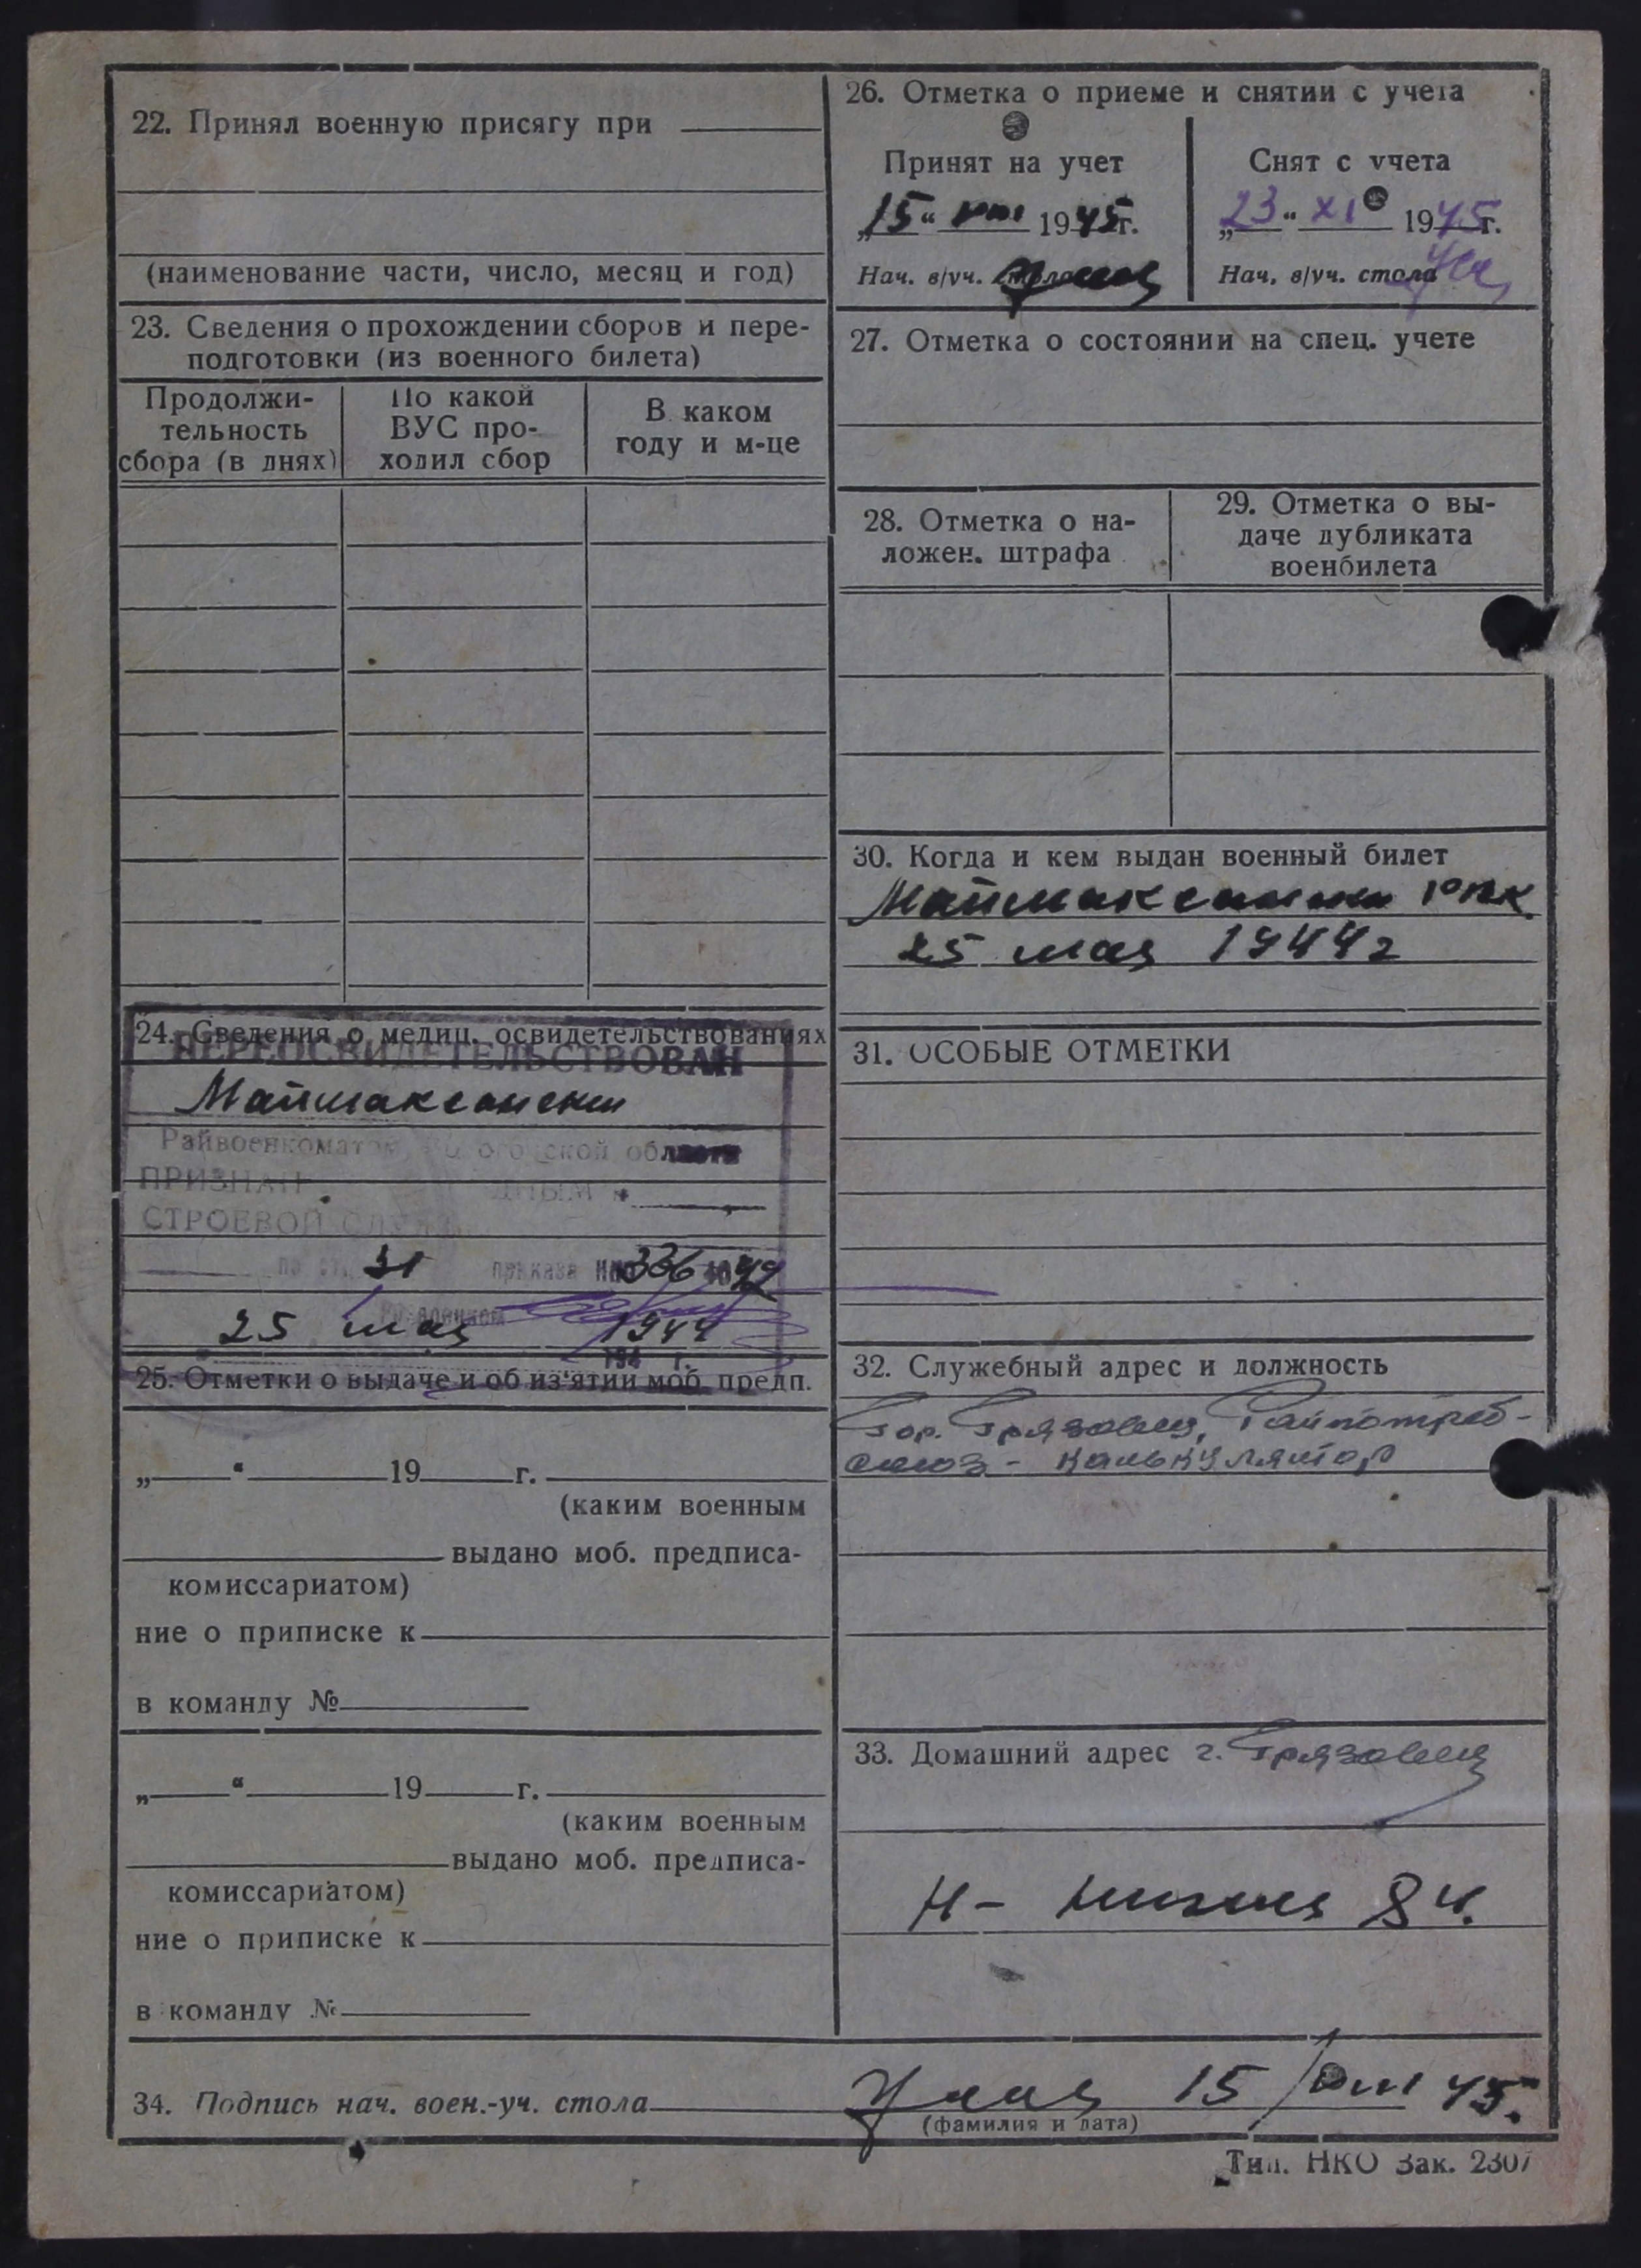 22. Принял военную присягу при
(наименование части, число, месяц и год)
23. Сведения о прохождении сборов и пере-
подготовки (из военного билета)
Продолжи-
тельность
сбора (в днях)
По какой
ВУС про-
ходил сбор
В каком
году и м-це
24. Сведения о медиц. освидетельствованиях
ПЕРЕОСВИДЕТЕЛЬСТВОВАН
Маймаксански
Райвоенкомат области
ПРИЗНАН
СТРОЕВОЙ
по ст. 31 приказа НКО 336 1942
25 мая 1944
194 г.
25. Отметки о выдаче и об из'ятии моб. предп.
„ “ 19 г.
(каким военным
выдано моб. предписа-
комиссариатом)
ние о приписке к
в команду №
„ “ 19 г.
(каким военным
выдано моб. предписа-
комиссариатом)
ние о приписке к
в команду №
26. Отметка о приеме и снятии с учета
Принят на учет
„15“ VIII 1945г.
Нач. в/уч. стола
Снят с учета
„23“ XI 1945г.
Нач. в/уч. стола
27. Отметка о состоянии на спец. учете
28. Отметка о на-
ложен. штрафа
29. Отметка о вы-
даче дубликата
военбилета
30. Когда и кем выдан военный билет
Маймаксански РВК.
25 мая 1944г
31. ОСОБЫЕ ОТМЕТКИ
32. Служебный адрес и должность
Гор. Грязовец, Райпотреб-
союз - калькулятор
33. Домашний адрес г. Грязовец
34. Подпись нач. воен.-уч. стола 15/VIII 45.
(фамилия и дата)
Тип. НКО Зак. 2307